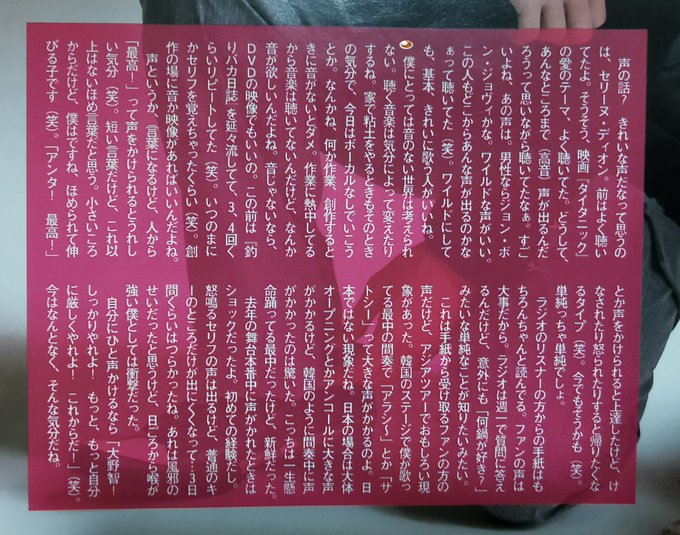 声の話？　きれいな声だなって思うの
は、セリーヌ・ディオン。前はよく聴い
てたよ。そうそう、映画『タイタニック』
の愛のテーマ、よく聴いてた。どうして、
あんなところまで（高音）声が出るんだ
ろうって思いながら聴いてたなぁ。すご
いよね、あの声は。男性ならジョン・ボ
ン・ジョヴィかな。ワイルドな声がいい。
この人もどこからあんな声が出るのかな
ぁって聴いてた（笑）。ワイルドにして
も、基本、きれいに歌う人がいいね。
僕にとっては音のない世界は考えられ
ない。聴く音楽は気分によって変えたり
するね。家で粘土をやるときもそのとき
の気分で、今日はボーカルなしでいころ
とか。なんかね、何か作業、創作すると
きに音がないとダメ。作業に熱中してる
から音楽は聴いてないんだけど、なんか
音が欲しいんだよね。音じゃないなら、
DVDの映像でもいいの。この前は『釣
りバカ日誌』を延々流してて、3、4回く
らいリピートしてた（笑）。いつのまに
かセリフを覚えちゃったくらい（笑）。創
作の場に音か映像があればいいんだよね。
声というか、言葉になるけど、人から
「最高！」って声をかけられるとうれし
い気分（笑）。短い言葉だけど、これ以
上はないほめ言葉だと思う。小さいころ
からだけど、僕はですね、ほめられて伸
びる子です（笑）。「アンタ！　最高！」
とか声をかけられると上達したけど、け
なされたり怒られたりすると帰りたくな
るタイプ（笑）。今でもそうかも（笑）。
単純っちゃ単純でしょ。
ラジオのリスナーの方からの手紙はも
ちろんちゃんと読んでる。ファンの声は
大事だから。ラジオは週一で質問に答え
るんだけど、意外にも「何鍋が好き？」
みたいな単純なことが知りたいみたい。
これは手紙から受け取るファンの方の
声だけど、アジアツアーでおもしろい現
象があった。韓国のステージで僕が歌っ
てる最中の間奏で「アラシ〜」とか「サ
トシ〜」って大きな声がかかるのよ。日
本ではない現象だね。日本の場合は大体
オープニングとかアンコールに大きな声
がかかるけど、韓国のように間奏中に声
がかかったのは驚いた。こっちは一生懸
命踊ってる最中だったけど、新鮮だった。
去年の舞台本番中に声がかれたときは
ショックだったよ。初めての経験だし。
怒鳴るセリフの声は出るけど、普通のキ
ーのところだけが出にくくなって…3日
間くらいはつらかったね。あれは風邪の
せいだったと思うけど、日ごろから喉が
強い僕としては衝撃だった。
自分にひと声かけるなら「大野智！
しっかりやれよ！　もっと、もっと自分
に厳しくやれよ！　これからだー！」（笑）。
今はなんとなく、そんな気分だね。